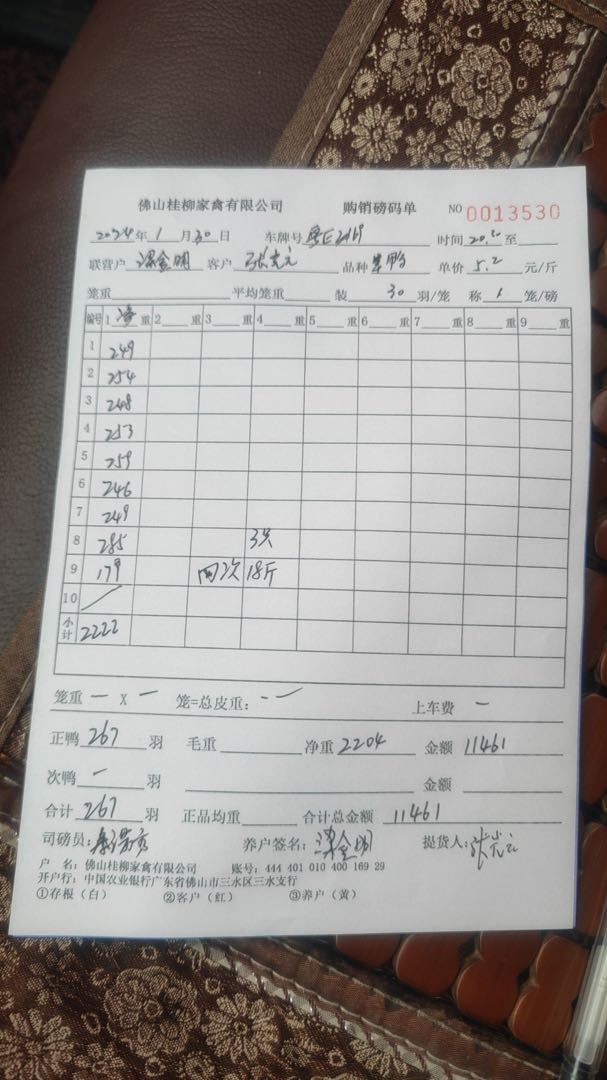 佛山桂柳家禽有限公司 购销磅码单 NO 0013530
2024年1月30日 车牌号 时间20.30至
联营户 梁金明 客户 张光元 品种 鸭 单价 5.2 元/斤
笼重 平均笼重 装 30 羽/笼 称 1 笼/磅
编号 1 净 重 2 重 3 重 4 重 5 重 6 重 7 重 8 重 9 重
1 249
2 254
3 248
4 253
5 259
6 246
7 249
8 285 3只
9 179 四次 18斤
10
小计 2222
笼重 一 X 一 笼=总皮重: 上车费 一
正鸭 267 羽 毛重 净重 2204 金额 11461
次鸭 一 羽 金额
合计 267 羽 正品均重 合计总金额 11461
司磅员: 养户签名: 梁金明 提货人: 张光元
户 名: 佛山桂柳家禽有限公司 账号: 444 401 010 400 169 29
开户行: 中国农业银行广东省佛山市三水区三水支行
①存根(白) ②客户(红) ③养户(黄)